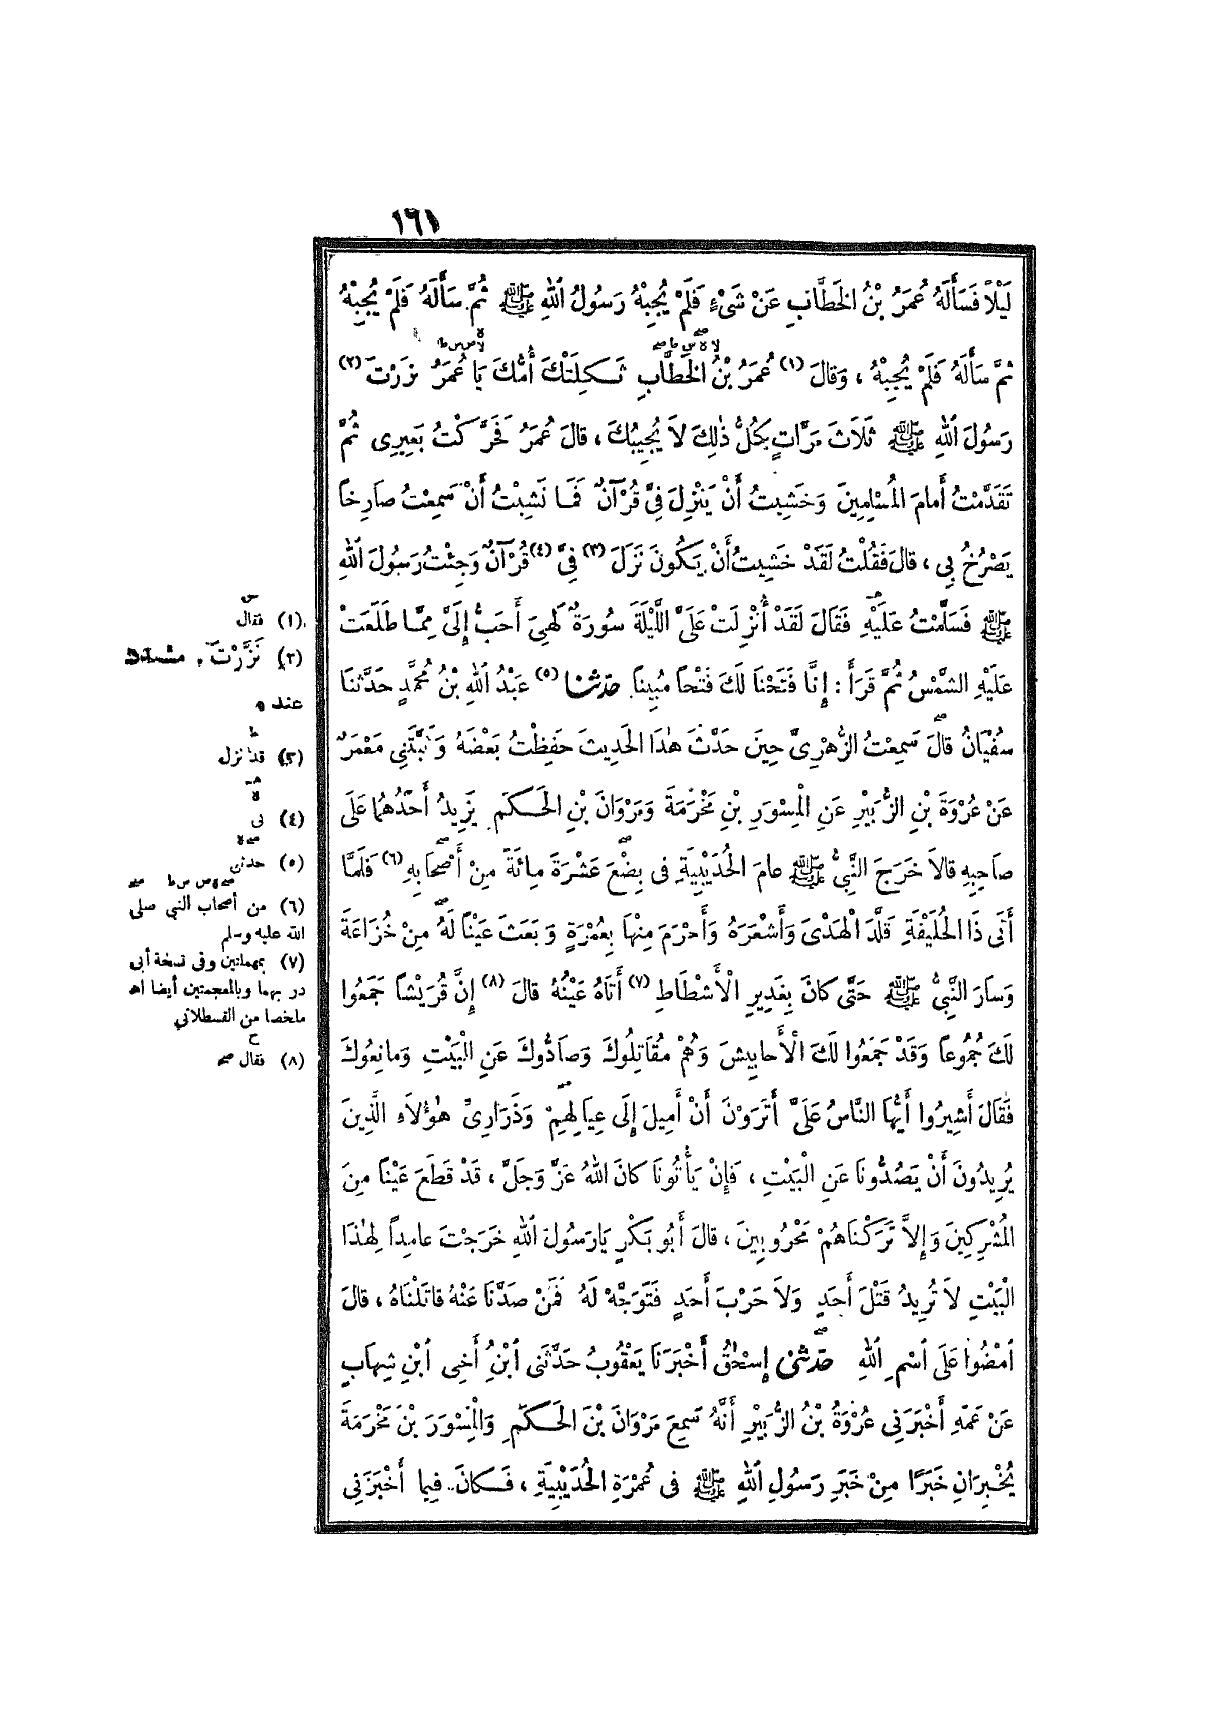 ١٦١
لَيْلاً فَسَأَلَهُ عُمَرُ بْنُ الخَطَّابِ عَنْ شَىْءٍ فَلَمْ يُجِبْهُ رَسُولُ اللهِ ﷺ ثُمَّ سَأَلَهُ فَلَمْ يُجِبْهُ
ثُمَّ سَأَلَهُ فَلَمْ يُجِبْهُ ، وَقالَ (١) عُمَرُ بْنُ الخَطَّابِ ثَكِلَتْكَ أُمُّكَ يَا عُمَرُ نَزَرْتَ (٢)
رَسُولَ اللهِ ﷺ ثَلَاثَ مَرَّاتٍ كُلُّ ذٰلِكَ لاَ يُجِيبُكَ ، قالَ عُمَرُ فَحَرَّكْتُ بَعِيرِى ثُمَّ
تَقَدَّمْتُ أَمامَ المُسْلِمِينَ وَخَشِيتُ أَنْ يَنْزِلَ فِىَّ قُرْآنٌ فَمَا نَشِبْتُ أَنْ سَمِعْتُ صَارِخاً
يَصْرُخُ بِى ، قالَ فَقُلْتُ لَقَدْ خَشِيتُ أَنْ يَكُونَ نَزَلَ (٣) فِىَّ (٤) قُرْآنٌ وَجِئْتُ رَسُولَ اللهِ
ﷺ فَسَلَّمْتُ عَلَيْهِ فَقَالَ لَقَدْ أُنْزِلَتْ عَلَىَّ اللَّيْلَةَ سُورَةٌ لَهِىَ أَحَبُّ إِلَىَّ مِمَّا طَلَعَتْ
عَلَيْهِ الشَّمْسُ ثُمَّ قَرَأَ : إِنَّا فَتَحْنَا لَكَ فَتْحاً مُبِيناً حَدَّثَنَا (٥) عَبْدُ اللهِ بْنُ مُحَمَّدٍ حَدَّثَنَا
سُفْيَانُ قالَ سَمِعْتُ الزُّهْرِىَّ حِينَ حَدَّثَ هٰذَا الحَدِيثَ حَفِظْتُ بَعْضَهُ وَثَبَّتَنِى مَعْمَرٌ
عَنْ عُرْوَةَ بْنِ الزُّبَيْرِ عَنِ المِسْوَرِ بْنِ مَخْرَمَةَ وَمَرْوَانَ بْنِ الحَكَمِ يَزِيدُ أَحَدُهُمَا عَلَى
صَاحِبِهِ قالاَ خَرَجَ النَّبِىُّ ﷺ عامَ الحُدَيْبِيَةِ فى بِضْعَ عَشْرَةَ مِائَةً مِنْ أَصْحَابِهِ (٦) فَلَمَّا
أَتَى ذَا الحُلَيْفَةِ قَلَّدَ الْهَدْىَ وَأَشْعَرَهُ وَأَحْرَمَ مِنْهَا بِعُمْرَةٍ وَبَعَثَ عَيْناً لَهُ مِنْ خُزَاعَةَ
وَسَارَ النَّبِىُّ ﷺ حَتَّى كانَ بِغَدِيرِ الْأَشْطَاطِ (٧) أَتَاهُ عَيْنُهُ قالَ (٨) إِنَّ قُرَيْشاً جَمَعُوا
لَكَ جُمُوعاً وَقَدْ جَمَعُوا لَكَ الْأَحابِيشَ وَهُمْ مُقَاتِلُوكَ وَصَادُّوكَ عَنِ الْبَيْتِ وَمانِعُوكَ
فَقَالَ أَشِيرُوا أَيُّهَا النَّاسُ عَلَىَّ أَتَرَوْنَ أَنْ أَمِيلَ إِلَى عِيَالِهِمْ وَذَرَارِىِّ هٰؤُلاَءِ الَّذِينَ
يُرِيدُونَ أَنْ يَصُدُّونَا عَنِ الْبَيْتِ ، فَإِنْ يَأْتُونَا كانَ اللهُ عَزَّ وَجَلَّ ، قَدْ قَطَعَ عَيْناً مِنَ
المُشْرِكِينَ وَإِلاَّ تَرَكْنَاهُمْ مَحْرُوبِينَ ، قالَ أَبُو بَكْرٍ يَارَسُولَ اللهِ خَرَجْتَ عامِداً لِهٰذَا
الْبَيْتِ لاَ تُرِيدُ قَتْلَ أَحَدٍ وَلاَ حَرْبَ أَحَدٍ فَتَوَجَّهْ لَهُ فَمَنْ صَدَّنَا عَنْهُ قاتَلْنَاهُ ، قالَ
اَمْضُوا عَلَى اَسْمِ اللهِ حَدَّثَنِى إِسْحٰقُ أَخْبَرَنَا يَعْقُوبُ حَدَّثَنِى اَبْنُ أَخِى اَبْنِ شِهَابٍ
عَنْ عَمِّهِ أَخْبَرَنِى عُرْوَةُ بْنُ الزُّبَيْرِ أَنَّهُ سَمِعَ مَرْوَانَ بْنَ الحَكَمِ وَالْمِسْوَرَ بْنَ مَخْرَمَةَ
يُخْبِرَانِ خَبَرًا مِنْ خَبَرِ رَسُولِ اللهِ ﷺ فى عُمْرَةِ الحُدَيْبِيَةِ ، فَكانَ فِيما أَخْبَرَنِى
(١) فقال
(٢) نَزَّرْتَ . مشددة
عند ه
(٣) قد نزل
(٤) بى
(٥) حدثنى
(٦) من أصحاب النبي صلى
الله عليه وسلم
(٧) بمهملتين وفى نسخة أبى
ذر بهما وبالمعجمتين أيضا اه
ملخصا من القسطلاني
(٨) فقال